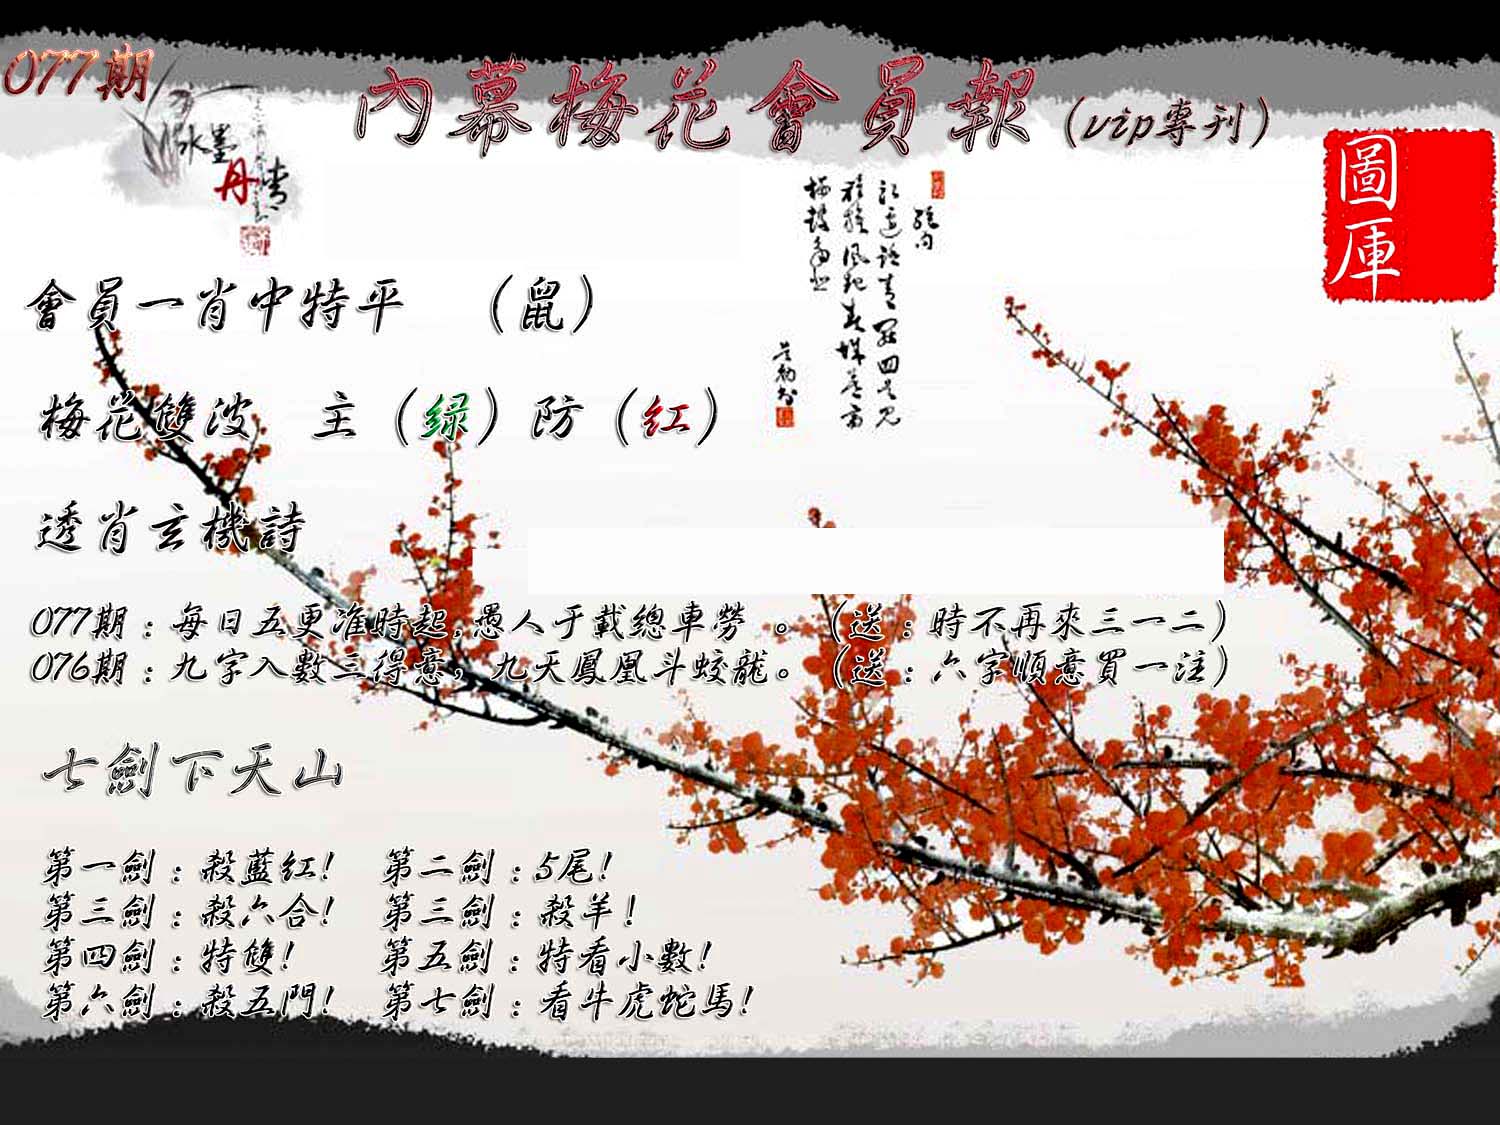 077期
內幕梅花會員報(vip專刊)
水墨
丹青
圖
庫
會員一肖中特平 (鼠)
梅花雙波 主(绿)防(红)
透肖玄機詩
077期:每日五更准時起,愚人于載總車勞。(送:時不再來三一二)
076期:九字入數三得意,九天鳳凰斗蛟龍。(送:六字順意買一注)
七劍下天山
第一劍:殺藍红! 第二劍:5尾!
第三劍:殺六合! 第三劍:殺羊!
第四劍:特雙! 第五劍:特看小數!
第六劍:殺五門! 第七劍:看牛虎蛇馬!